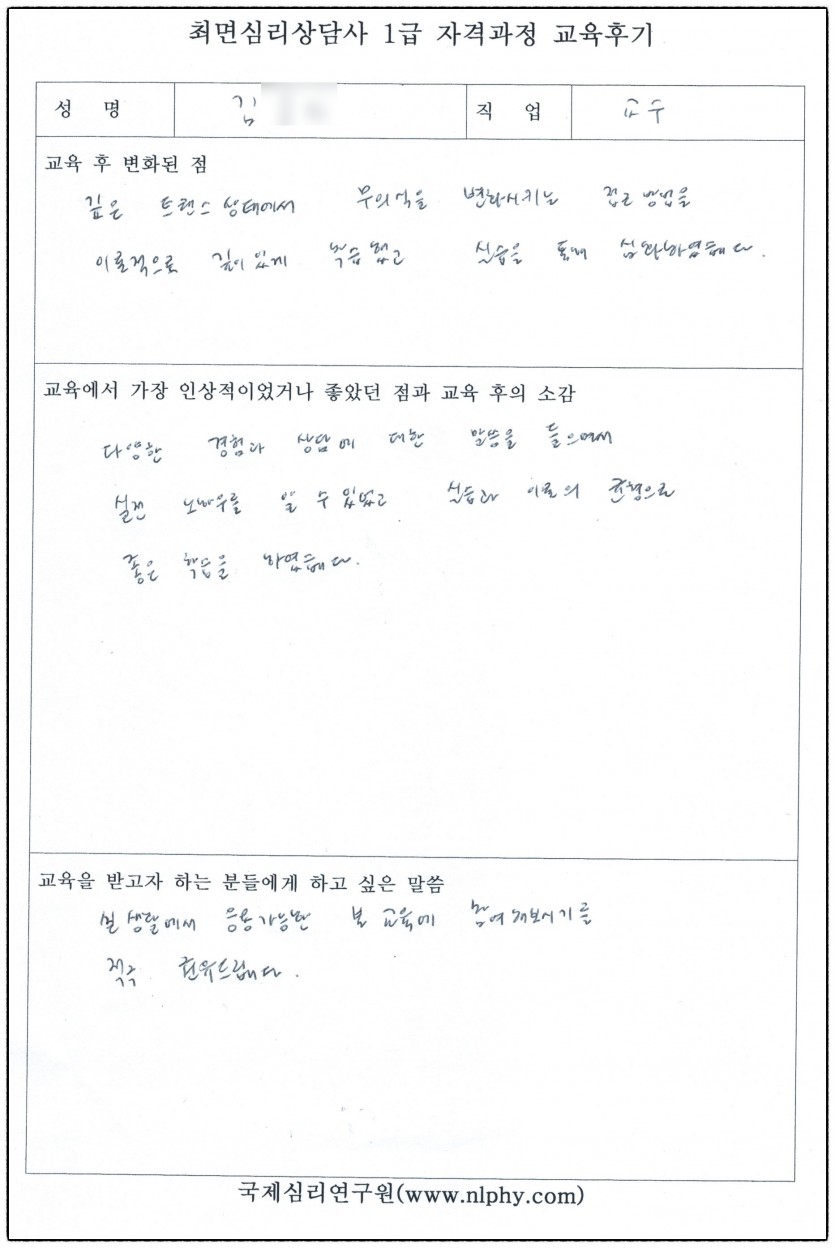 최면심리상담사 1급 자격과정 교육후기
성 명 김 직 업 교수
교육 후 변화된 점
깊은 트랜스 상태에서 무의식을 변화시키는 접근 방법을
이론적으로 깊이 있게 학습했고 실습을 통해 심화하였습니다.
교육에서 가장 인상적이었거나 좋았던 점과 교육 후의 소감
다양한 경험과 상담에 대한 말씀을 들으면서
실전 노하우를 알 수 있었고 실습과 이론의 균형으로
좋은 학습을 하였습니다.
교육을 받고자 하는 분들에게 하고 싶은 말씀
실 생활에서 응용가능한 본 교육에 참여해보시기를
적극 권유드립니다.
국제심리연구원(www.nlphy.com)